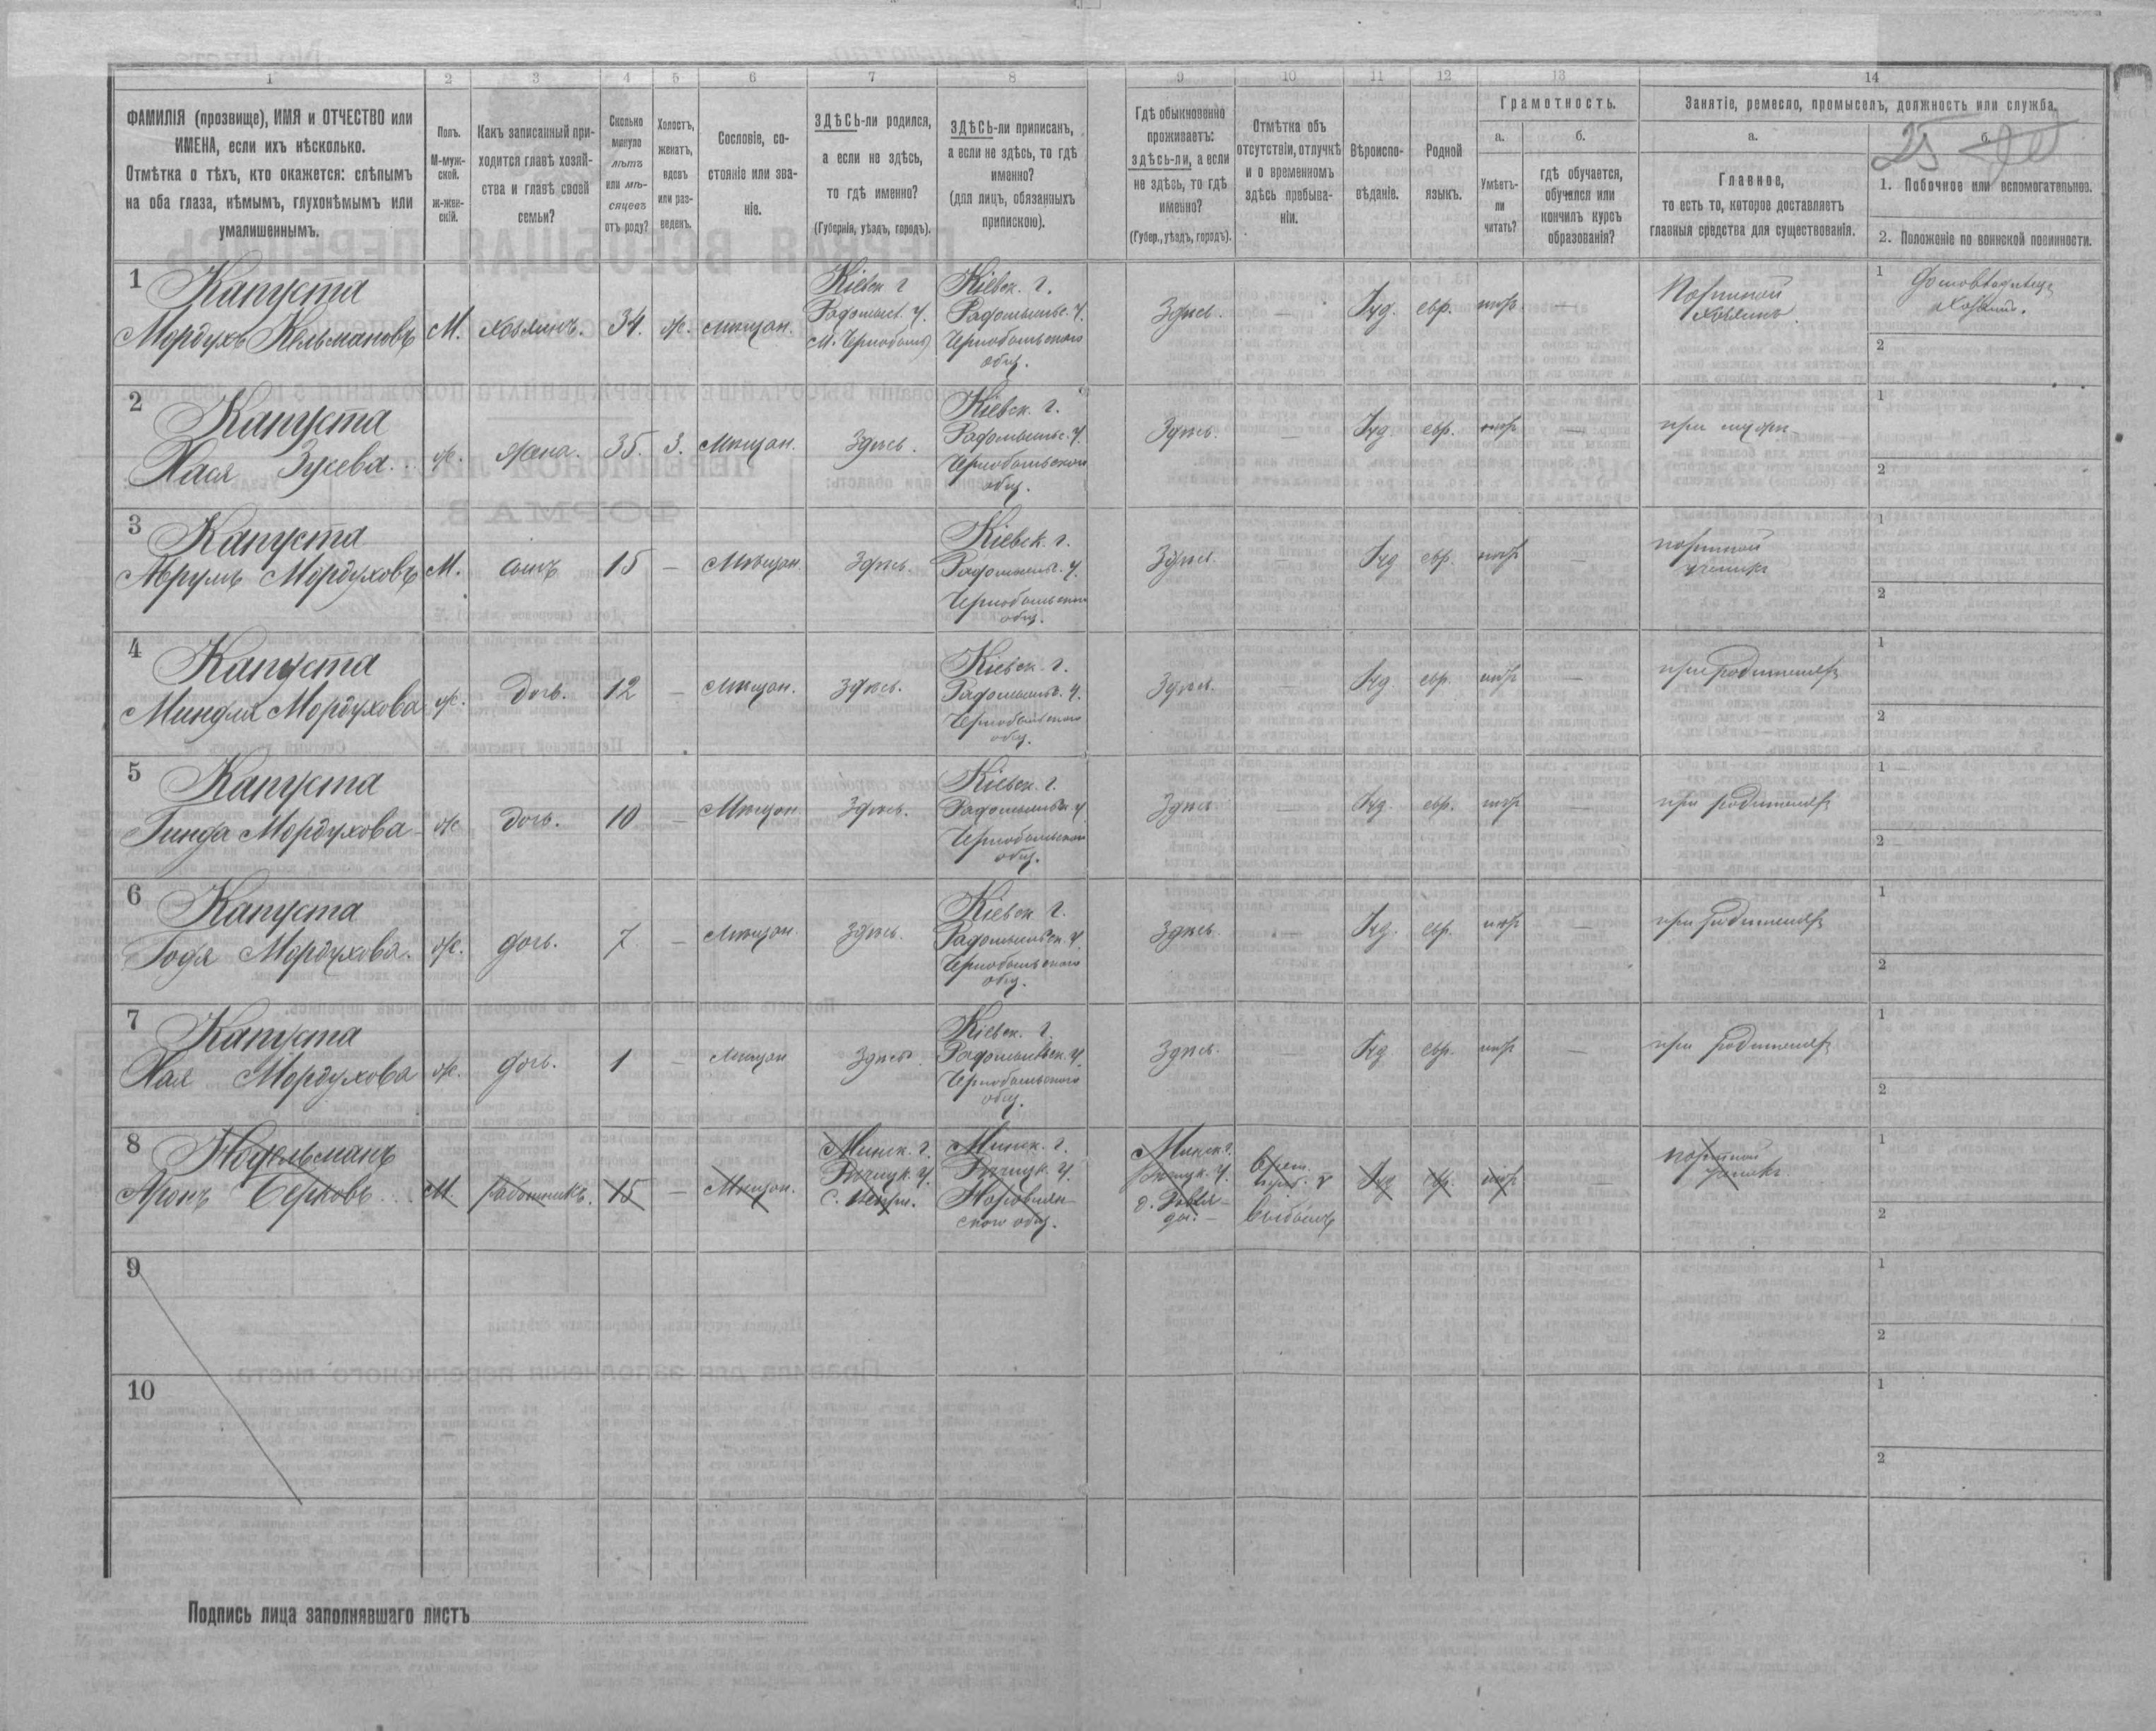 1 2 3 4 5 6 7 8 9 10 11 12 13 14
ФАМИЛІЯ (прозвище), ИМЯ и ОТЧЕСТВО или
ИМЕНА, если ихъ нѣсколько.
Отмѣтка о тѣхъ, кто окажется: слѣпымъ
на оба глаза, нѣмымъ, глухонѣмымъ или
умалишеннымъ.
Полъ.
М-муж-
ской.
ж-жен-
скій.
Какъ записанный при-
ходится главѣ хозяй-
ства и главѣ своей
семьи?
Сколько
минуло
лѣтъ
или мѣ-
сяцевъ
отъ роду?
Холостъ,
женатъ,
вдовъ
или раз-
веденъ.
Сословіе, со-
стояніе или зва-
ніе.
ЗДѢСЬ-ли родился,
а если не здѣсь,
то гдѣ именно?
(Губернія, уѣздъ, городъ).
ЗДѢСЬ-ли приписанъ,
а если не здѣсь, то гдѣ
именно?
(для лицъ, обязанныхъ
припискою).
Гдѣ обыкновенно
проживаетъ:
здѣсь-ли, а если
не здѣсь, то гдѣ
именно?
(Губер., уѣздъ, городъ).
Отмѣтка объ
отсутствіи, отлучкѣ
и о временномъ
здѣсь пребыва-
ніи.
Вѣроиспо-
вѣданіе.
Родной
языкъ.
Грамотность.
а.
Умѣетъ-
ли
читать?
б.
гдѣ обучается,
обучался или
кончилъ курсъ
образованія?
Занятіе, ремесло, промыселъ, должность или служба.
а.
Главное,
то есть то, которое доставляетъ
главныя средства для существованія.
б.
25
1. Побочное или вспомогательное.
2. Положеніе по воинской повинности.
1
Капуста
Мордухъ Кельмановъ
М.
хозяинъ.
34.
ж.
мѣщан.
Кіевск г
Радомысл. у.
м. Чернобыль
Кіевск. г.
Радомысльс. у.
Чернобыльскаго
общ.
Здѣсь.
—
Іуд.
евр.
негр
—
Портной
хозяинъ.
1
2
2
Капуста
Хася Зусева.
ж.
жена.
35.
З.
Мѣщан.
Здѣсь.
Кіевск. г.
Радомысльс. у.
Чернобыльскаго
общ.
Здѣсь.
—
Іуд.
евр.
негр
—
при мужѣ
1
2
3
Капуста
Абрумъ Мордуховъ
М.
сынъ
15
—
Мѣщан.
Здѣсь.
Кіевск. г.
Радомысльс. у.
Чернобыльскаго
общ.
Здѣсь.
—
Іуд
евр.
негр
—
портной
ученикъ
1
2
4
Капуста
Миндля Мордухова
ж.
дочь.
12
—
Мѣщан.
Здѣсь.
Кіевск. г.
Радомысльс. у.
Чернобыльскаго
общ.
Здѣсь.
—
Іуд.
евр.
негр
—
при родителяхъ
1
2
5
Капуста
Гинда Мордухова
ж
дочь.
10
—
Мѣщан.
Здѣсь.
Кіевск. г.
Радомысльск у
Чернобыльскаго
общ.
Здѣсь
—
Іуд.
евр.
негр
—
при родителяхъ
1
2
6
Капуста
Годя Мордухова.
ж.
дочь.
7
—
Мѣщан.
Здѣсь.
Кіевск г.
Радомысльск. у.
Чернобыльскаго
общ.
Здѣсь.
—
Іуд.
евр.
негр
—
при родителяхъ
1
2
7
Капуста
Хая Мордухова
ж.
дочь.
1
—
Мѣщан
Здѣсь
Кіевск. г.
Радомысльск. у.
Чернобыльскаго
общ.
Здѣсь.
—
Іуд
евр.
негр
—
при родителяхъ
1
2
8
Аронъ Берковъ
М.
работникъ.
15
—
Мѣщан.
Минск. г.
Рѣчицк. у.
Минск. г.
Рѣчицк. у.
Наровлян-
скаго общ.
Минск г.
Рѣчицк. у.
Выбылъ
Іуд
евр.
негр
—
портной
1
2
9
1
2
10
1
2
Подпись лица заполнявшаго листъ